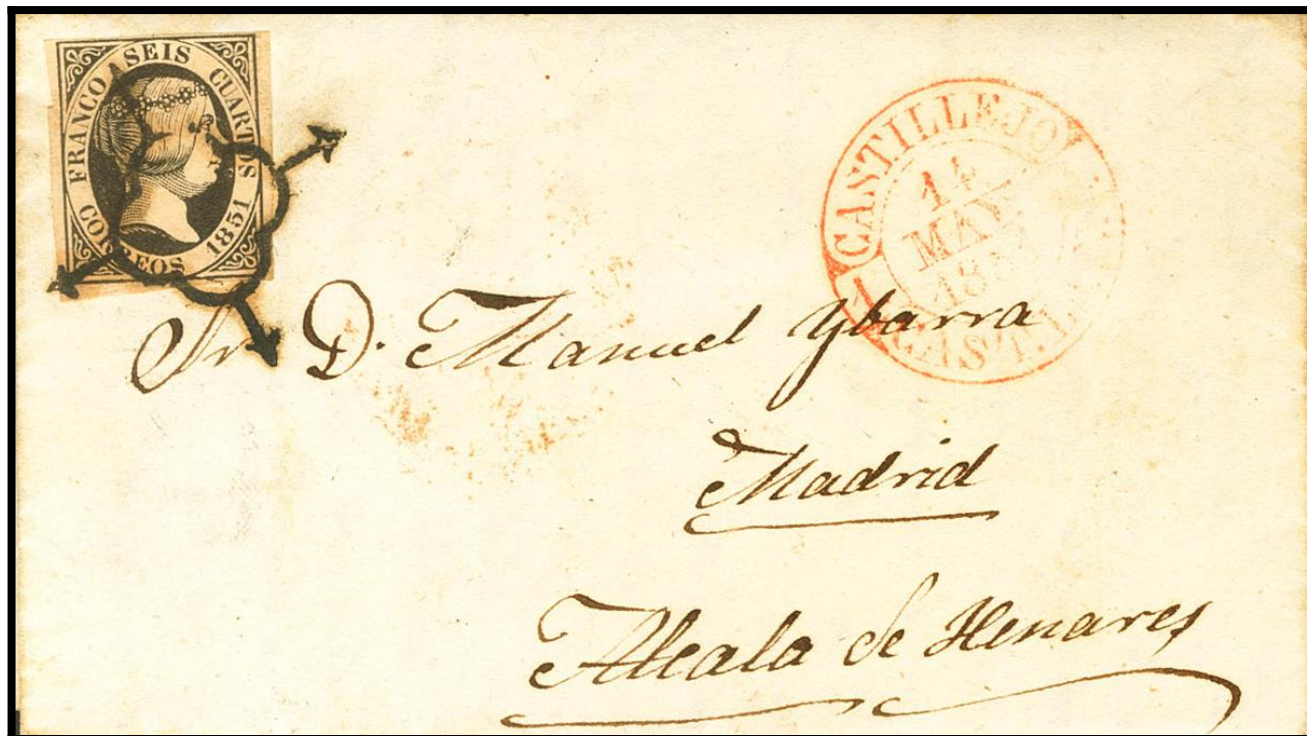 FRANCO SEIS CUARTOS
CORREOS 1851
CASTILLEJO
14
MAY
Sr. D. Manuel Ybarra
Madrid
Alcala de Henares